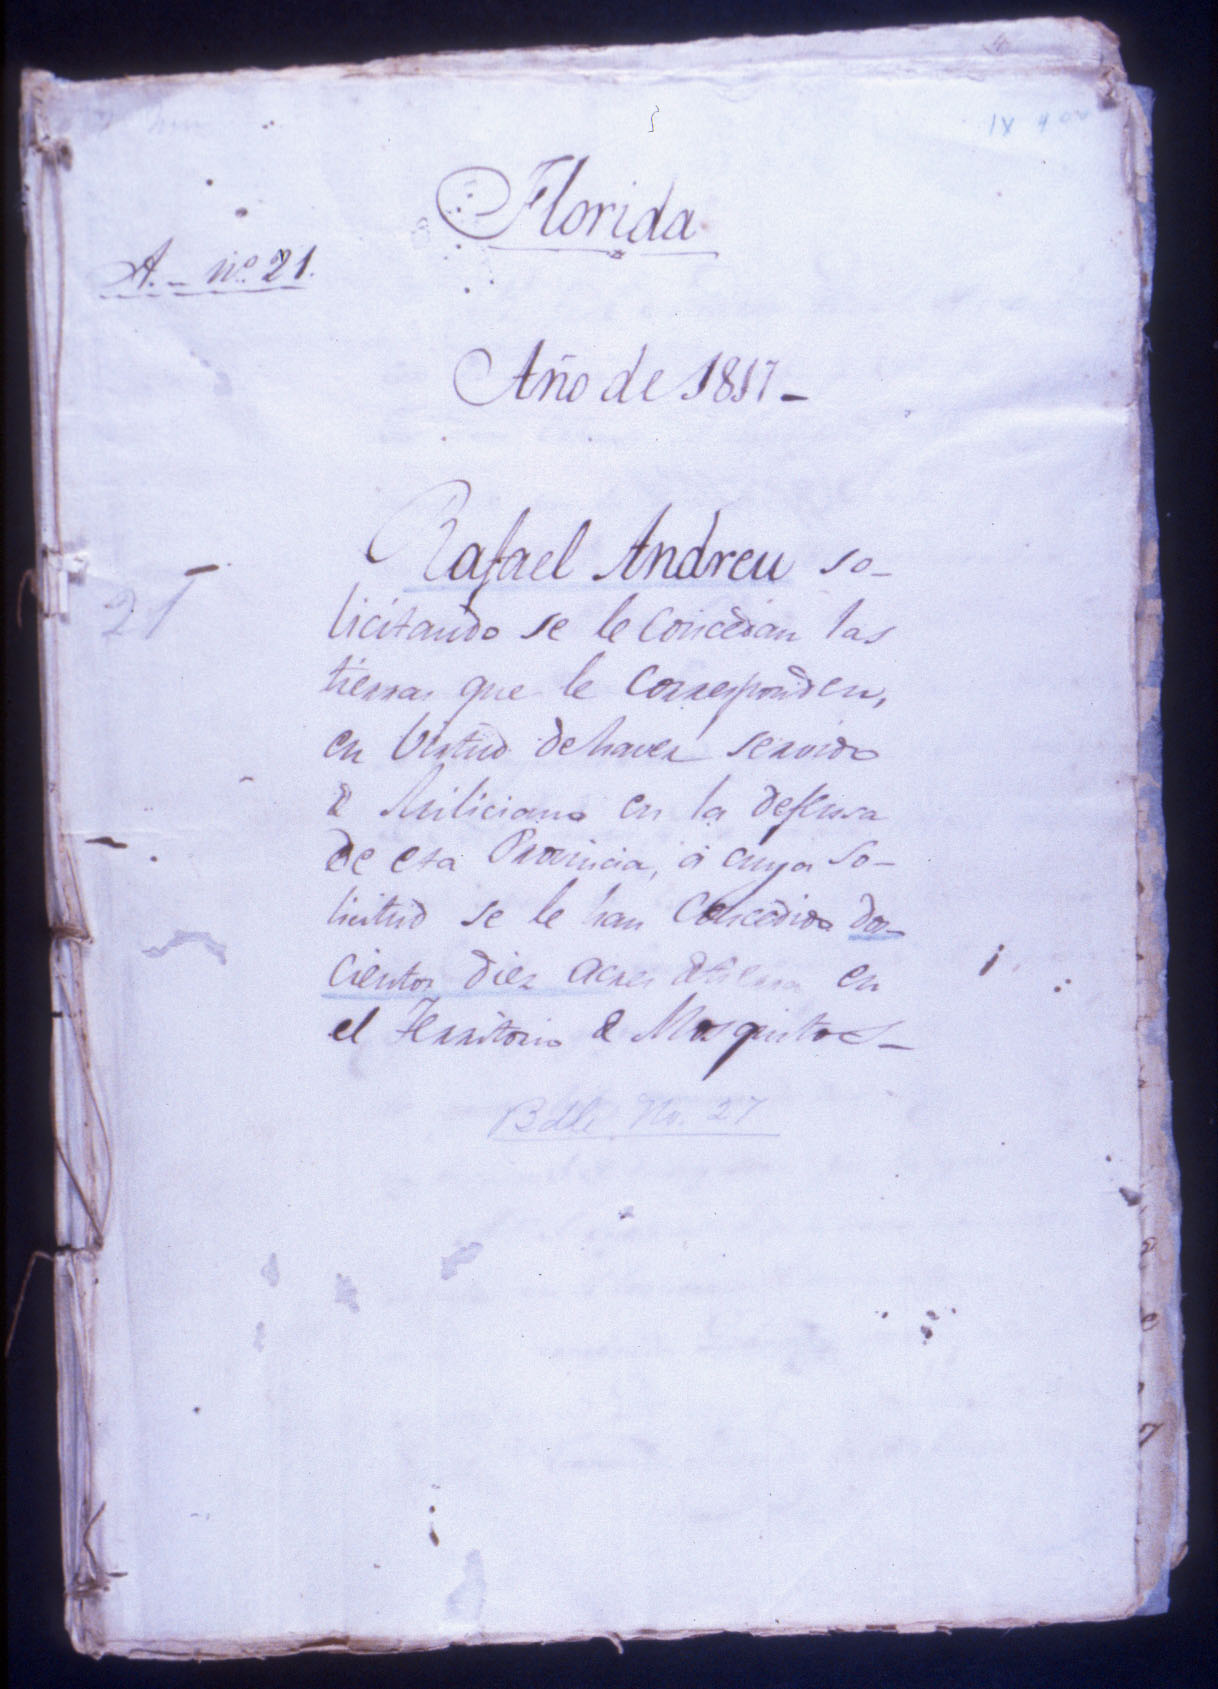 Florida
A. - nº 21.
Año de 1817-
Rafael Andreu so-
licitando se le concedan las
tierras que le corresponden,
en virtud de haver servido
d Miliciano en la defensa
de esta Provincia, á cuya so-
licitud se le han concedido dos-
cientos diez acres d tierra en
el Territorio d Mosquitos-
21
Bdle No. 27